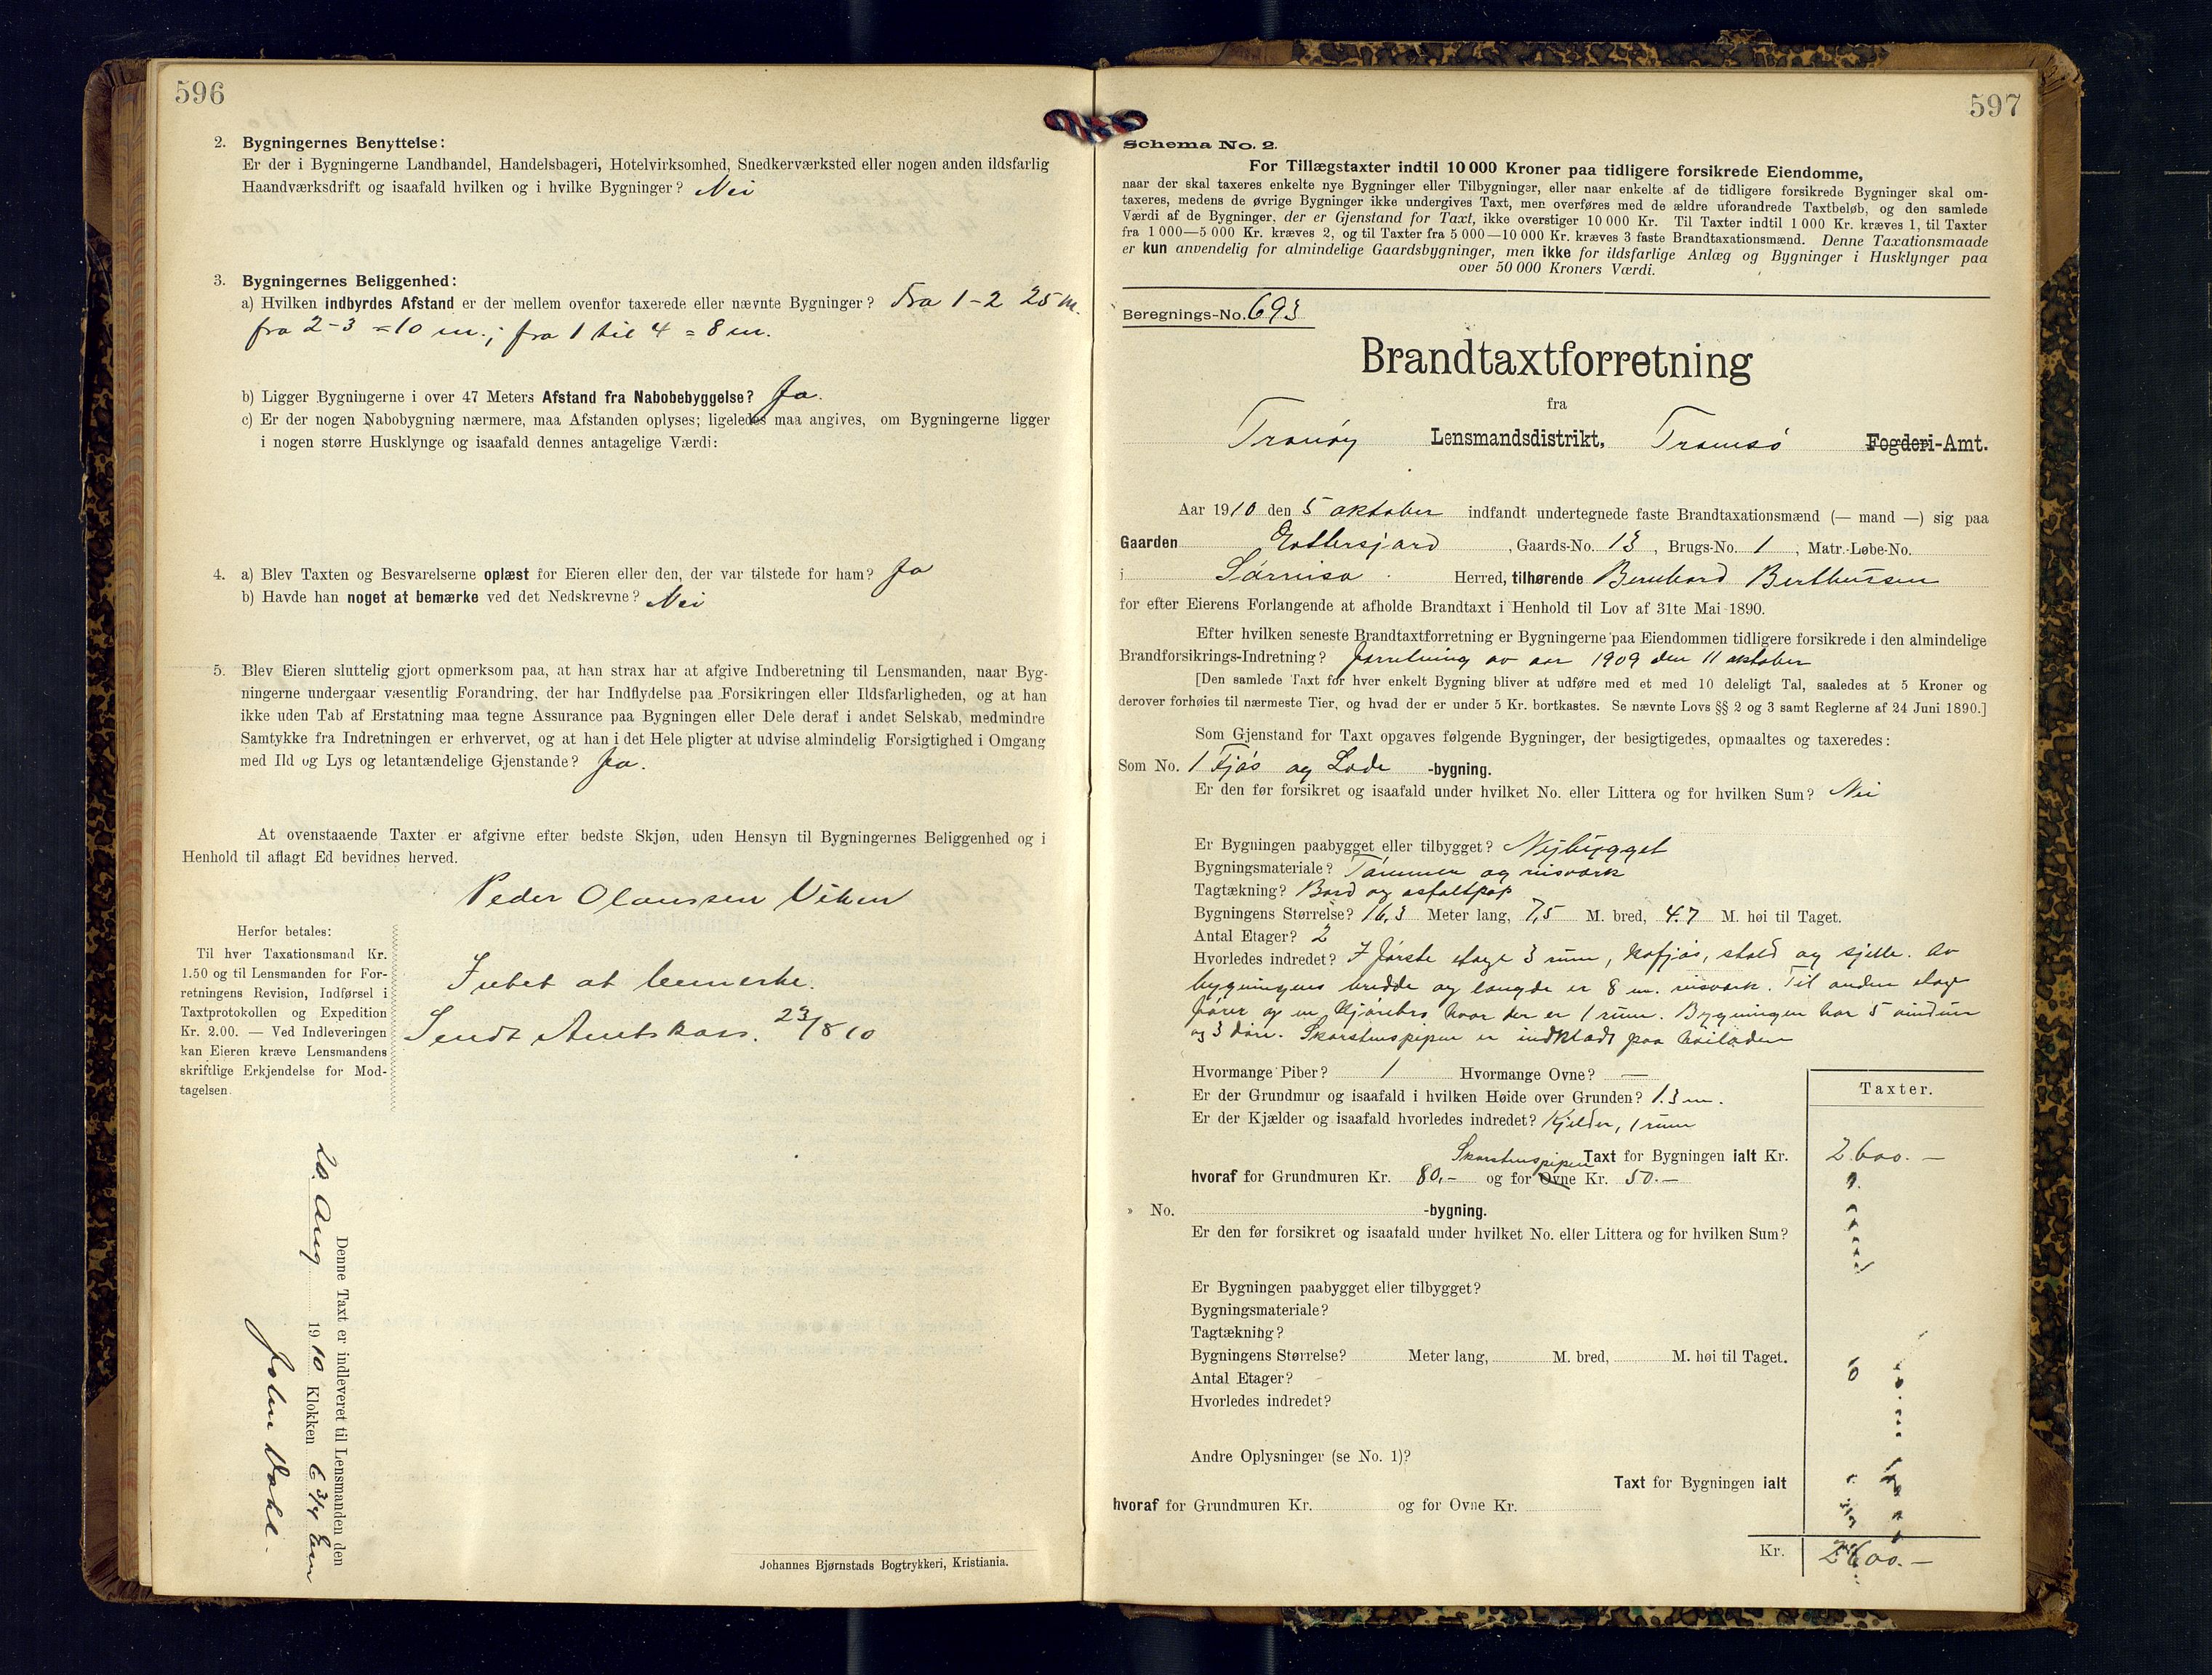 596
2. Bygningernes Benyttelse:
Er der i Bygningerne Landhandel, Handelsbageri, Hotelvirksomhed, Snedkerværksted eller nogen anden ildsfarlig
Haandværksdrift og isaafald hvilken og i hvilke Bygninger? Nei
3. Bygningernes Beliggenhed:
a) Hvilken indbyrdes Afstand er der mellem ovenfor taxerede eller nævnte Bygninger? Fra 1-2 25 m.
fra 2-3 = 10 m.; fra 1 til 4 = 8 m.
b) Ligger Bygningerne i over 47 Meters Afstand fra Nabobebyggelse? Ja.
c) Er der nogen Nabobygning nærmere, maa Afstanden oplyses; ligeledes maa angives, om Bygningerne ligger
i nogen større Husklynge og isaafald dennes antagelige Værdi:
4. a) Blev Taxten og Besvarelserne oplæst for Eieren eller den, der var tilstede for ham? Ja
b) Havde han noget at bemærke ved det Nedskrevne? Nei
5. Blev Eieren sluttelig gjort opmerksom paa, at han strax har at afgive Indberetning til Lensmanden, naar Byg-
ningerne undergaar væsentlig Forandring, der har Indflydelse paa Forsikringen eller Ildsfarligheden, og at han
ikke uden Tab af Erstatning maa tegne Assurance paa Bygningen eller Dele deraf i andet Selskab, medmindre
Samtykke fra Indretningen er erhvervet, og at han i det Hele pligter at udvise almindelig Forsigtighed i Omgang
med Ild og Lys og letantændelige Gjenstande? Ja.
At ovenstaaende Taxter er afgivne efter bedste Skjøn, uden Hensyn til Bygningernes Beliggenhed og i
Henhold til aflagt Ed bevidnes herved.
Peder Olaussen Viken
Herfor betales:
Til hver Taxationsmand Kr.
1.50 og til Lensmanden for For-
retningens Revision, Indførsel i
Taxtprotokollen og Expedition
Kr. 2.00. — Ved Indleveringen
kan Eieren kræve Lensmandens
skriftlige Erkjendelse for Mod-
tagelsen.
Intet at bemerke.
Sendt Amtskass. 23/8 10
Denne Taxt er indleveret til Lensmanden den
20. Aug 1910 Klokken 6 3/4 Em
John Dahl.
Johannes Bjørnstads Bogtrykkeri, Kristiania.
597
Schema No. 2.
For Tillægstaxter indtil 10 000 Kroner paa tidligere forsikrede Eiendomme,
naar der skal taxeres enkelte nye Bygninger eller Tilbygninger, eller naar enkelte af de tidligere forsikrede Bygninger skal om-
taxeres, medens de øvrige Bygninger ikke undergives Taxt, men overføres med de ældre uforandrede Taxtbeløb, og den samlede
Værdi af de Bygninger, der er Gjenstand for Taxt, ikke overstiger 10 000 Kr. Til Taxter indtil 1 000 Kr. kræves 1, til Taxter
fra 1 000—5 000 Kr. kræves 2, og til Taxter fra 5 000—10 000 Kr. kræves 3 faste Brandtaxationsmænd. Denne Taxationsmaade
er kun anvendelig for almindelige Gaardsbygninger, men ikke for ildsfarlige Anlæg og Bygninger i Husklynger paa
over 50 000 Kroners Værdi.
Beregnings-No. 693
Brandtaxtforretning
fra
Tranøy Lensmandsdistrikt, Tromsø Fogderi-Amt.
Aar 1910 den 5 oktober indfandt undertegnede faste Brandtaxationsmænd (— mand —) sig paa
Gaarden , Gaards-No. 13 , Brugs-No. 1 , Matr.-Løbe-No.
i Sørreisa Herred, tilhørende Bernhard Berthussen
for efter Eierens Forlangende at afholde Brandtaxt i Henhold til Lov af 31te Mai 1890.
Efter hvilken seneste Brandtaxtforretning er Bygningerne paa Eiendommen tidligere forsikrede i den almindelige
Brandforsikrings-Indretning? forretning av aar 1909 den 11 oktober
[Den samlede Taxt for hver enkelt Bygning bliver at udføre med et med 10 deleligt Tal, saaledes at 5 Kroner og
derover forhøies til nærmeste Tier, og hvad der er under 5 Kr. bortkastes. Se nævnte Lovs §§ 2 og 3 samt Reglerne af 24 Juni 1890.]
Som Gjenstand for Taxt opgaves følgende Bygninger, der besigtigedes, opmaaltes og taxeredes:
Som No. 1 Fjøs og Lade -bygning.
Er den før forsikret og isaafald under hvilket No. eller Littera og for hvilken Sum? Nei
Er Bygningen paabygget eller tilbygget? Nybygget
Bygningsmateriale? Tømmer og risverk
Tagtækning? Bord og asfaltpap
Bygningens Størrelse? 16,3 Meter lang, 7,5 M. bred, 4.7 M. høi til Taget.
Antal Etager? 2
Hvorledes indredet? I første etage 3 rum, kofjøs, stald og sjelle. Av
bygningens bredde og længde er 8 m. risverk. Til anden etage
fører og en kjørebro hvor der er 1 rum. Bygningen har 5 vinduer
og 3 døre. Skorstenspipen er indklædt paa høiladen
Hvormange Piber? 1 Hvormange Ovne? —
Er der Grundmur og isaafald i hvilken Høide over Grunden? 1.3 m.
Er der Kjælder og isaafald hvorledes indredet? Kjelder, 1 rum
Taxter.
Taxt for Bygningen ialt Kr. 2600.—
Skorstenspipen
hvoraf for Grundmuren Kr. 80,- og for Ovne Kr. 50.—
» No. -bygning.
Er den før forsikret og isaafald under hvilket No. eller Littera og for hvilken Sum?
Er Bygningen paabygget eller tilbygget?
Bygningsmateriale?
Tagtækning?
Bygningens Størrelse? Meter lang, M. bred, M. høi til Taget.
Antal Etager?
Hvorledes indredet?
Andre Oplysninger (se No. 1)?
Taxt for Bygningen ialt
hvoraf for Grundmuren Kr. og for Ovne Kr.
Kr. 2600.—